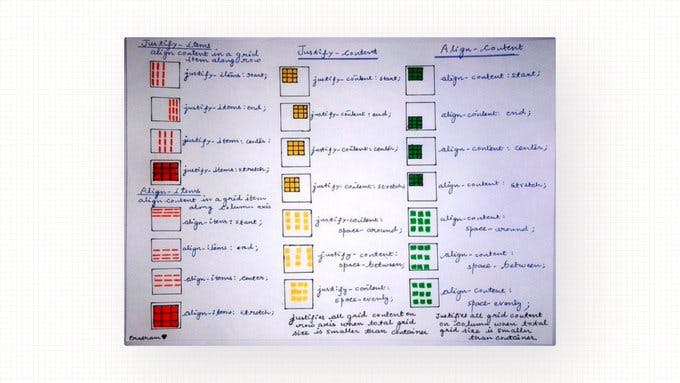 Justify-items
align content in a grid
item along row
justify-items: start;
justify-items: end;
justify-items: center;
justify-items: stretch;
Align-items
align-content in a grid item
along column axis
align-items: start;
align-items: end;
align-items: center;
align-items: stretch;
Justify-Content
justify-content: start;
justify-content: end;
justify-content: center;
justify-content: stretch;
justify-content:
space-around;
justify-content:
space-between;
justify-content:
space-evenly;
justifies all grid content on
row axis when total grid
size is smaller than container
Align-Content
align-content: start;
align-content: end;
align-content: center;
align-content: stretch;
align-content:
space-around;
align-content:
space-between;
align-content:
space-evenly;
Justifies all grid content
on column when total
grid size is smaller
than container